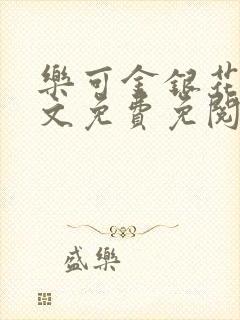 樂可金銀花
文免費免閱
盛樂